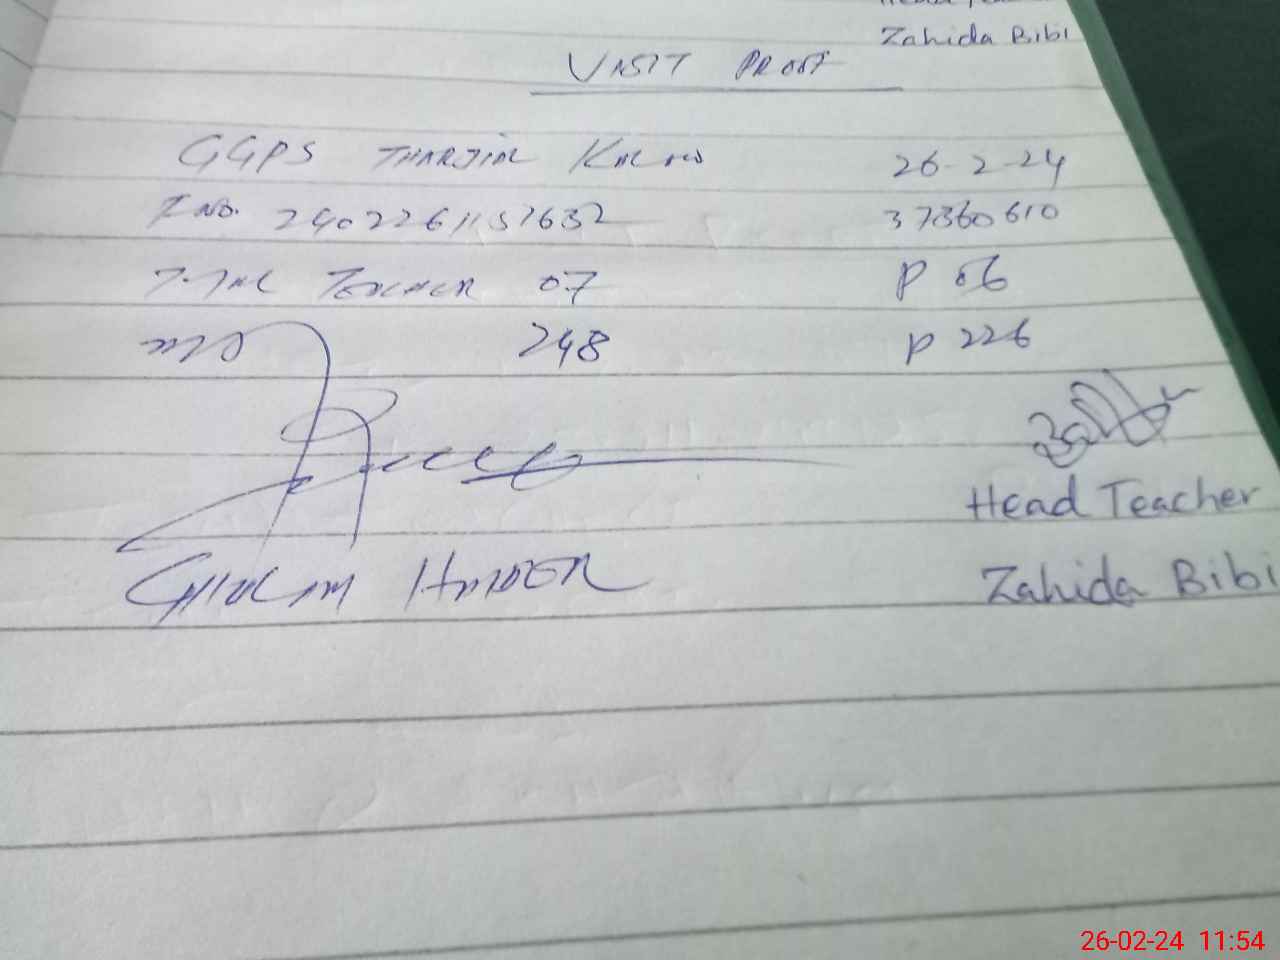 Zahida Bibi
VISIT PROOF
GGPS THARJIAL KALAN 26-2-24
I NO. 2402261157632 37360610
Total TEACHER 07 P 06
248 P 226
Head Teacher
GHULAM HAIDER Zahida Bibi
26-02-24 11:54